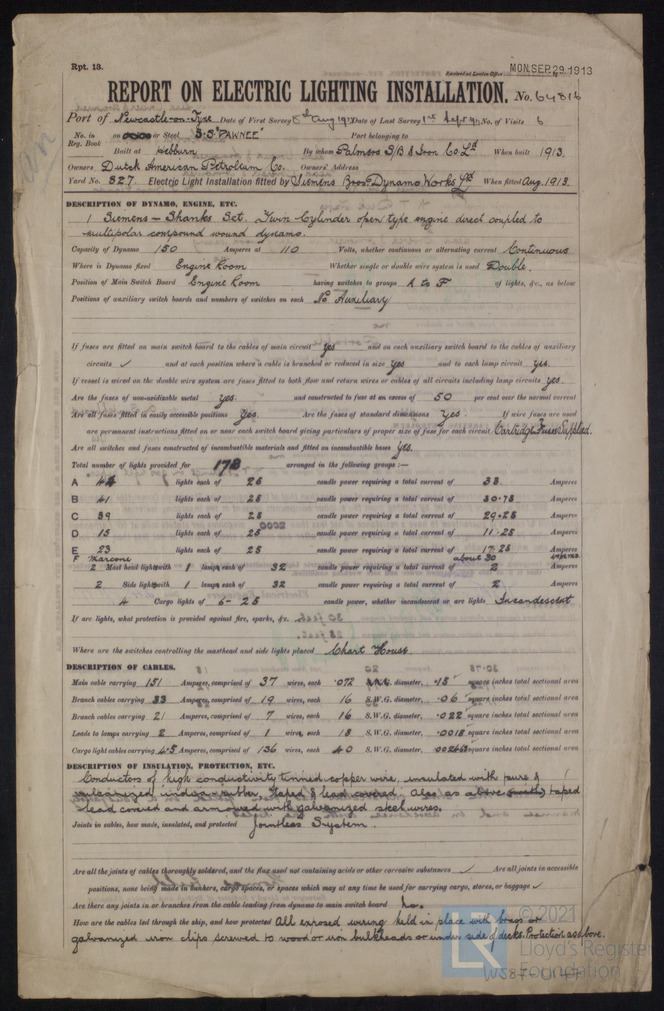 Rpt. 13.
Received at London Office MON. SEP. 29. 1913
REPORT ON ELECTRIC LIGHTING INSTALLATION. No. 64816
Port of Newcastle-on-Tyne Date of First Survey Aug 1913 Date of Last Survey 1st Sept No. of Visits 6
No. in Reg. Book on or Steel S.S. "PAWNEE" Port belonging to
Built at Hebburn By whom Palmers S/B & Iron Co. Ld When built 1913.
Owners Dutch American Petroleum Co. Owners' Address
Yard No. 827 Electric Light Installation fitted by Siemens Bros Dynamo Works Ld When fitted Aug. 1913.
DESCRIPTION OF DYNAMO, ENGINE, ETC.
1 Siemens - Shanks Set. Twin Cylinder open type engine direct coupled to
multipolar compound wound dynamo.
Capacity of Dynamo 150 Amperes at 110 Volts, whether continuous or alternating current Continuous
Where is Dynamo fixed Engine Room Whether single or double wire system is used Double.
Position of Main Switch Board Engine Room having switches to groups A to F of lights, &c., as below
Positions of auxiliary switch boards and numbers of switches on each No Auxiliary
If fuses are fitted on main switch board to the cables of main circuit yes and on each auxiliary switch board to the cables of auxiliary
circuits ✓ and at each position where a cable is branched or reduced in size yes and to each lamp circuit yes.
If vessel is wired on the double wire system are fuses fitted to both flow and return wires or cables of all circuits including lamp circuits yes.
Are the fuses of non-oxidizable metal yes. and constructed to fuse at an excess of 50 per cent over the normal current
Are all fuses fitted in easily accessible positions Yes. Are the fuses of standard dimensions yes. If wire fuses are used
are permanent instructions fitted on or near each switch board giving particulars of proper size of fuse for each circuit Cartridge Fuses Supplied.
Are all switches and fuses constructed of incombustible materials and fitted on incombustible bases Yes.
Total number of lights provided for 172 arranged in the following groups :—
A 44 lights each of 25 candle power requiring a total current of 33 Amperes
B 41 lights each of 25 candle power requiring a total current of 30.75 Amperes
C 39 lights each of 25 candle power requiring a total current of 29.25 Amperes
D 15 lights each of 25 candle power requiring a total current of 11.25 Amperes
E 23 lights each of 25 candle power requiring a total current of 17.25 Amperes
F Marconi about 30 amperes
2 Mast head light with 1 lamp each of 32 candle power requiring a total current of 2 Amperes
2 Side light with 1 lamp each of 32 candle power requiring a total current of 2 Amperes
4 Cargo lights of 6-25 candle power, whether incandescent or arc lights Incandescent
If arc lights, what protection is provided against fire, sparks, &c.
Where are the switches controlling the masthead and side lights placed Chart House
DESCRIPTION OF CABLES.
Main cable carrying 151 Amperes, comprised of 37 wires, each .072 diameter, .15 square inches total sectional area
Branch cables carrying 33 Amperes, comprised of 19 wires, each 16 S.W.G. diameter, .06 square inches total sectional area
Branch cables carrying 21 Amperes, comprised of 7 wires, each 16 S.W.G. diameter, .022 square inches total sectional area
Leads to lamps carrying 2 Amperes, comprised of 1 wires, each 18 S.W.G. diameter, .0018 square inches total sectional area
Cargo light cables carrying 4.5 Amperes, comprised of 136 wires, each 40 S.W.G. diameter, square inches total sectional area
DESCRIPTION OF INSULATION, PROTECTION, ETC.
Conductors of high conductivity tinned copper wire, insulated with pure &
vulcanized india-rubber, taped & lead covered. Also as above taped
lead covered and armoured with galvanized steel wires.
Joints in cables, how made, insulated, and protected Jointless System.
Are all the joints of cables thoroughly soldered, and the flux used not containing acids or other corrosive substances ✓ Are all joints in accessible
positions, none being made in bunkers, cargo spaces, or spaces which may at any time be used for carrying cargo, stores, or baggage ✓
Are there any joints in or branches from the cable leading from dynamo to main switch board No.
How are the cables led through the ship, and how protected All exposed wiring held in place with brass or
galvanized iron clips screwed to wood or iron bulkheads or under side of decks. Protection as above.
© 2021
LR
Lloyd's Register
Foundation